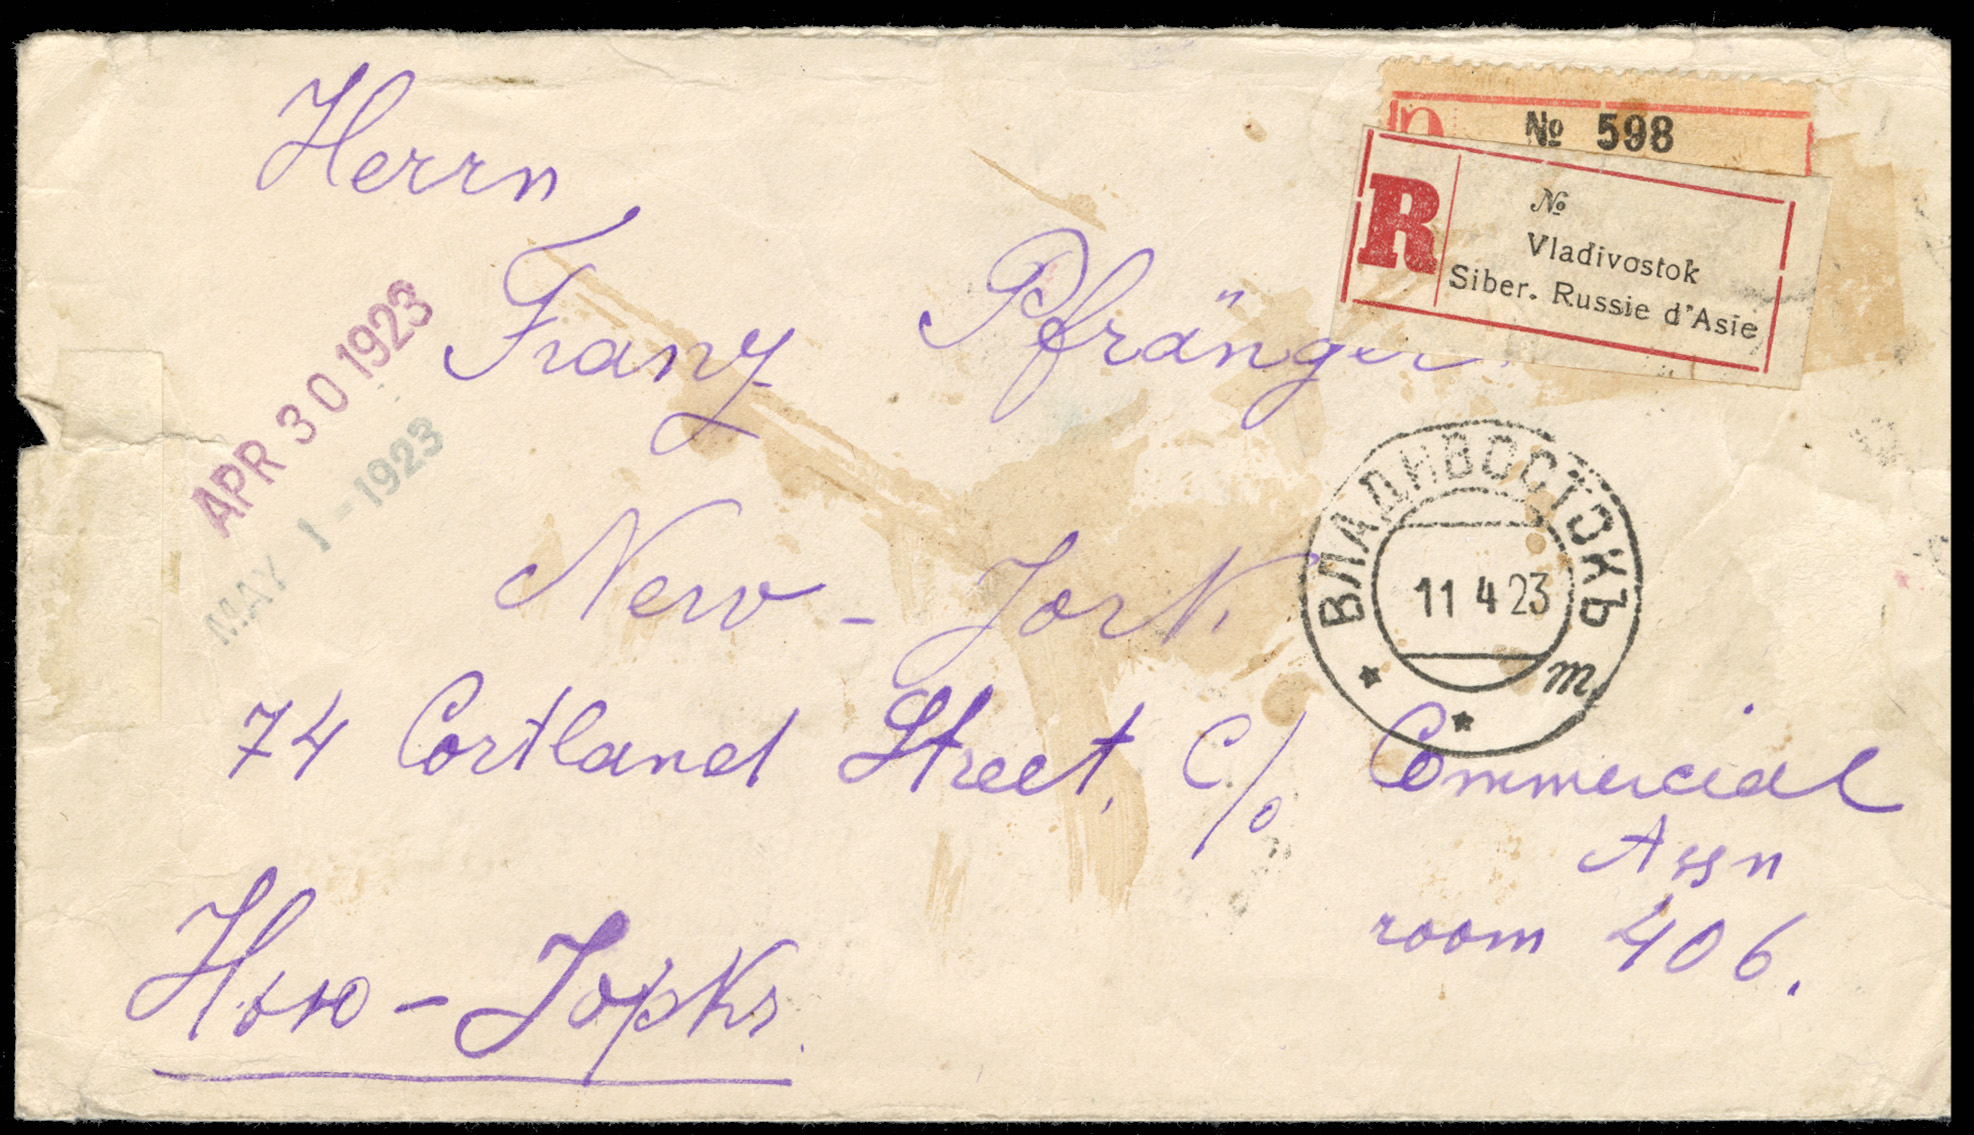 № 598
R
№
Vladivostok
Siber. Russie d'Asie
Herrn
Franz Pfränger
APR 30 1923
MAY 1 - 1923
New - Jork.
ВЛАДИВОСТОКЪ
11 4 23
m
74 Cortland Street, C/o Commercial
Assn
room 406.
Нью - Іоркъ.